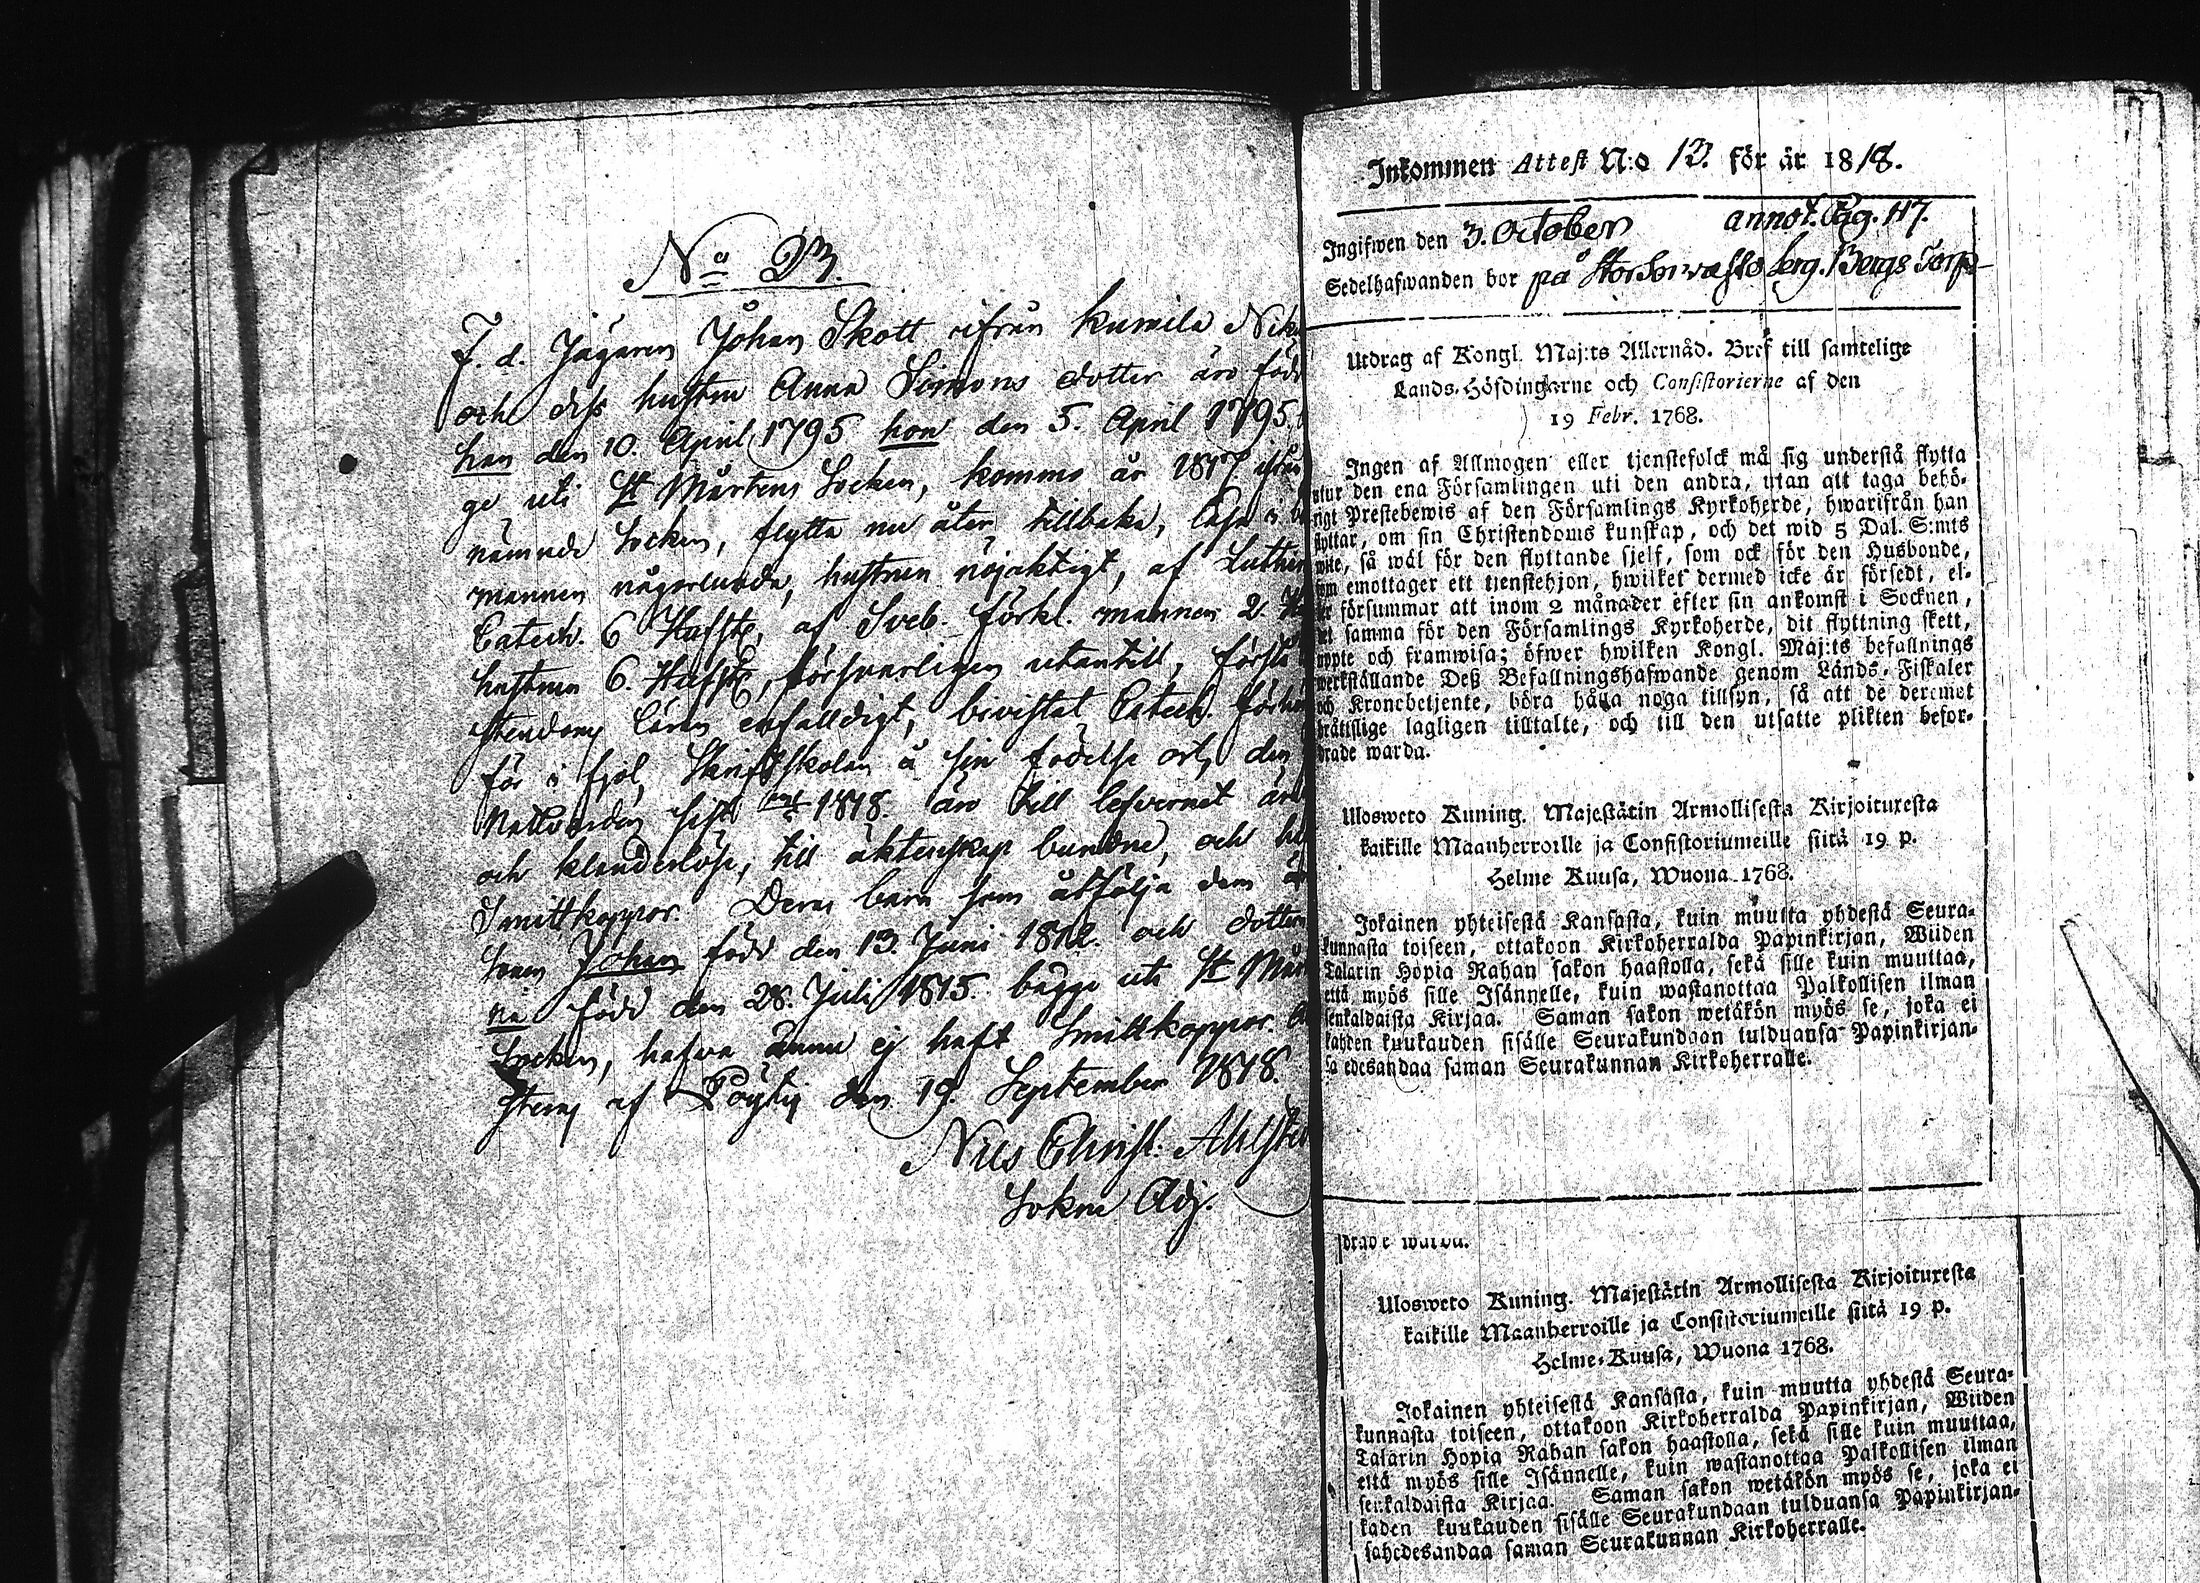 No 23.
F. d. Jägaren Johan Skott ifrån Kumila
och dess hustru Anna Simons dotter äro född
han den 10. April 1795 hon den 5. April 1795,
ge uti St Mårtens Socken, komma år 1817 ifrån
nämnde Socken, flytta nu åter tillbaka,
mannen någorlunda, hustrun nöjaktigt, af Luther
Catech. 6 Hufst, af Sveb. förkl. mannen 2.
hustrun 6. Hufst, försvarligen utantill, förstå
stendoms läran enfalldigt, bevistat Catech. förhör
för i fjol, Skriftskolan å sin födelse ort, den
Nattvarden sist 1818. äro till lefvernet
och klanderlöse, till äktenskap bundne, och
Smittkoppor. Deras barn som åtfölja dem
Sonen Johan född den 13. Juni 1812. och dotter
na född den 28. Juli 1815. bägge uti St Mår
Socken, hafva ännu ej haft Smittkoppor.
af Pöytis den 19. September 1818.
Nils Christ.
Sokne Adj.
Inkommen Attest N:o 13. för år 1818.
Ingifwen den 3. October annot. Pag. 117.
Sedelhafwanden bor på Bergs Torp
Utdrag af Kongl. Maj:ts Allernåd. Bref till samtelige
Lands-Höfdingarne och Consistorierne af den
19 Febr. 1768.
Ingen af Allmogen eller tjenstefolck må sig understå flytta
utur den ena Församlingen uti den andra, utan att taga behö-
rigt Prestebewis af den Församlings Kyrkoherde, hwarifrån han
flyttar, om sin Christendoms kunskap, och det wid 5 Dal. S:mts
wite, så wäl för den flyttande sjelf, som ock för den Husbonde,
som emottager ett tjenstehjon, hwilket dermed icke är försedt, el-
ler försummar att inom 2 månader efter sin ankomst i Socknen,
det samma för den Församlings Kyrkoherde, dit flyttning skett,
uppte och framwisa; öfwer hwilken Kongl. Maj:ts befallnings
werkställande Deß Befallningshafwande genom Lands-Fiskaler
och Kronebetjente, böra hålla noga tillsyn, så att de deremot
brättslige lagligen tilltalte, och till den utsatte plikten befor-
drade warda.
Ulosweto Kuning. Majestätin Armollisesta Kirjoituxesta
kaikille Maanherroille ja Consistoriumeille siitä 19 p.
Helme Kuusa, Wuona 1768.
Jokainen yhteisestä Kansasta, kuin muutta yhdestä Seura-
kunnasta toiseen, ottakoon Kirkoherralda Papinkirjan, Wiiden
Talarin Hopia Rahan sakon haastolla, sekä sille kuin muuttaa,
että myös sille Isännelle, kuin wastanottaa Palkollisen ilman
senkaldaista Kirjaa. Saman sakon wetäkön myös se, joka ei
kahden kuukauden sisälle Seurakundaan tulduansa Papinkirjan-
sa edesandaa saman Seurakunnan Kirkoherralle.
drade warda.
Ulosweto Kuning. Majestätin Armollisesta Kirjoituxesta
kaikille Maanherroille ja Consistoriumeille siitä 19 p.
Helme-Kuusa, Wuona 1768.
Jokainen yhteisestä Kansasta, kuin muutta yhdestä Seura-
kunnasta toiseen, ottakoon Kirkoherralda Papinkirjan, Wiiden
Talarin Hopia Rahan sakon haastolla, sekä sille kuin muuttaa,
että myös sille Isännelle, kuin wastanottaa Palkollisen ilman
senkaldaista Kirjaa. Saman sakon wetäkön myös se, joka ei
kaden kuukauden sisälle Seurakundaan tulduansa Papinkirjan-
sahedesandaa saman Seurakunnan Kirkoherralle.